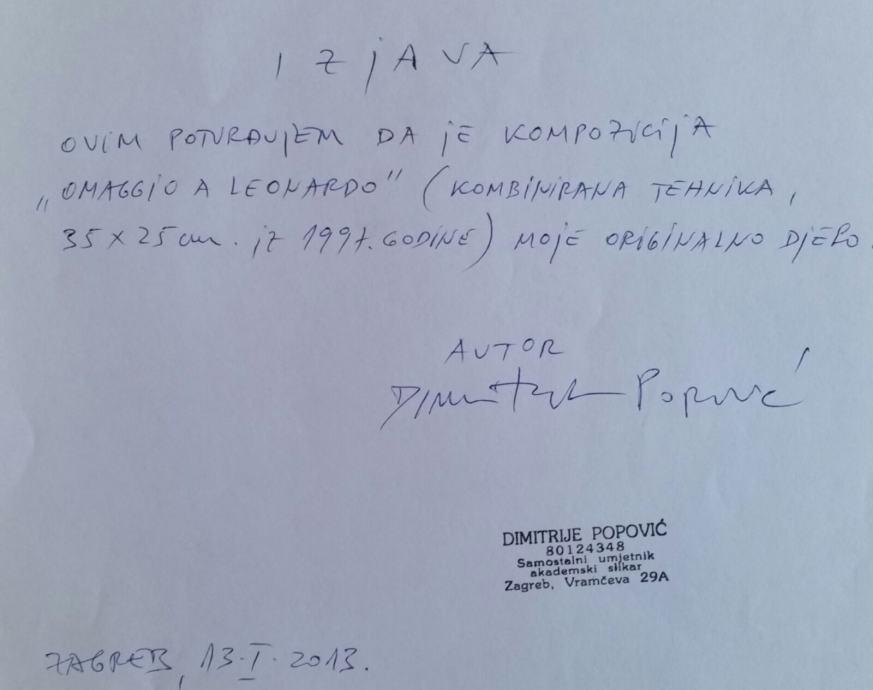 IZJAVA
OVIM POTVRĐUJEM DA JE KOMPOZICIJA
„OMAGGIO A LEONARDO" (KOMBINIRANA TEHNIKA,
35 X 25 cm. iz 1997. GODINE) MOJE ORIGINALNO DJELO.
AUTOR
Dimitrije Popović
DIMITRIJE POPOVIĆ
80124348
Samostalni umjetnik
akademski slikar
Zagreb, Vramčeva 29A
ZAGREB, 13.I.2013.